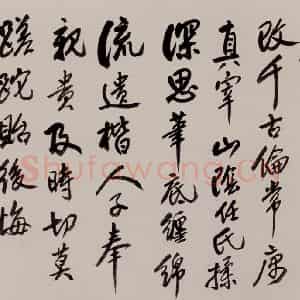 改千古倫常屬
真宰山陰任氏揉
深思華底纏綿
流遺楷人子奉
親貴及時切莫
蹉跎貽後悔
Shufawang.cn